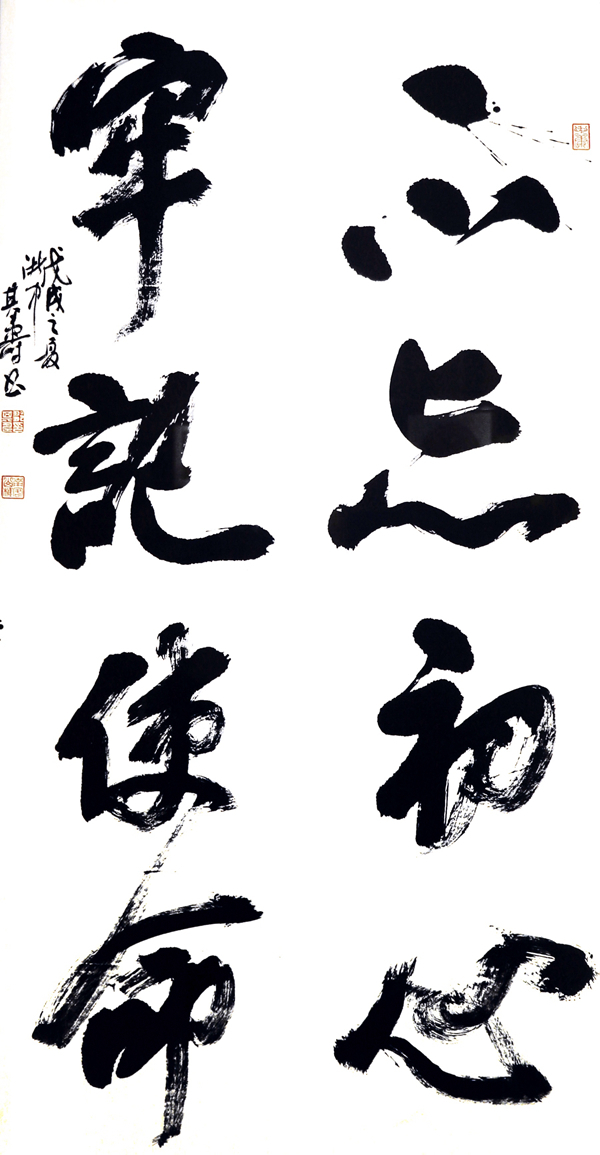 不忘初心
牢記使命
戊戌之夏
其壽书